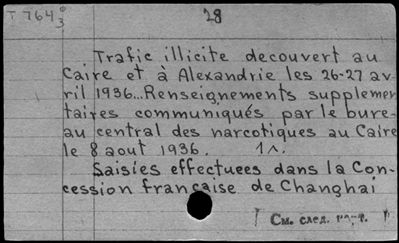 T 764⁰₃
28
Trafic illicite decouvert au
Caire et à Alexandrie les 26-27 av-
ril 1936...Renseignements supplemen
taires communiqués par le bure-
au central des narcotiques au Caire
le 8 aout 1936. 1л.
Saisies effectuees dans la Con-
cession française de Changhai
См. след.